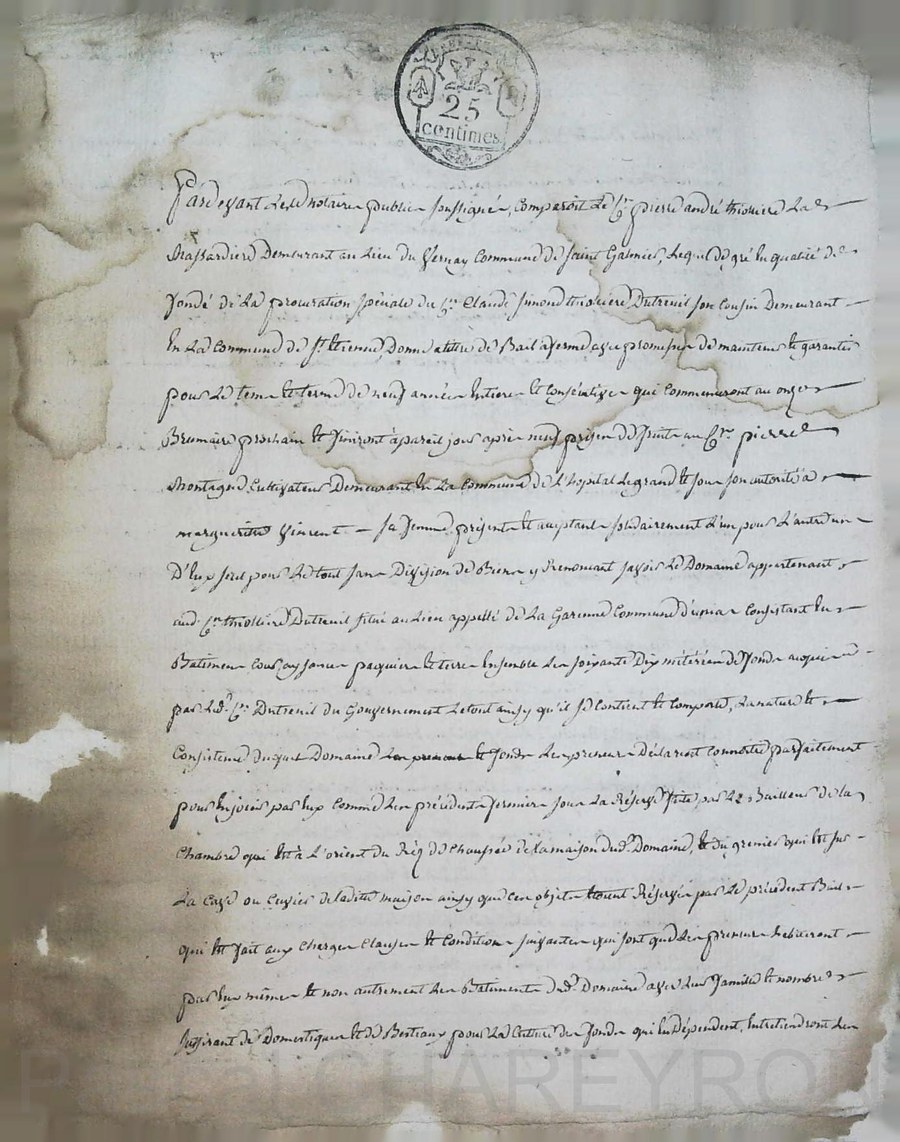 25
centimes
Pardevant Le notaire public soussigné, comparoit Le Cn. pierre andré thiolliere La
Massardiere Demeurant au Lieu du Vernay Commune de saint Galmier, Lequel de gré En qualité de
fondé de La procuration speciale du Cn. Claude Simond thiolliere Dutreuil son Cousin Demeurant
En La Commune de St. Etienne, Donne a titre de Bail a ferme avec promesse de maintenir Et garantir
pour Le tems Et terme de neuf années Entieres Et Consécutives qui Commenceront au onze
Brumaire prochain Et finiront a pareil jour après neuf prises de fruits au Cn. pierre
Montagne Cultivateur Demeurant En La Commune de L'hopital Legrand Et sous son autorité a
marguerite Vincent sa femme présents Et acceptants solidairement L'un pour L'autre un
D'Eux seul pour Le tout sans Division de Biens y Renonçant savoir Le Domaine appartenant
aud. Cn. thiolliere Dutreuil situé au Lieu appellé de La Garenne Commune d'unias Consistant En
Batimens Cour aysances paquier Et terre Ensemble Les soixante Dix méterées de fonds acquis
par Led. Cn. Dutreuil du Gouvernement Le tout ainsy qu'il se contient Et Comporte, La nature Et
Consistence duquel Domaine Et fonds Les preneurs Declarent Connoitre parfaitement
pour En jouir par Eux Comme Les précédents fermiers sous La Réserve faite par Le Bailleur de la
Chambre qui Est à L'orient du Réz de Chaussée de la maison dud. Domaine, Et du grenier qui Est sur
La Cave ou Cuvier de ladite maison ainsy que ces objets Etoient Réservés par Le précédent Bail
qui Est fait aux Charges Clauses Et Conditions suivantes qui sont que Les preneurs habiteront
par Eux mêmes Et non autrement Les Batimens dud. Domaine avec Leur famille Et nombre
suffisant de Domestiques Et de Bestiaux pour La Culture des fonds qui En Dépendent, Entretiendront Les
CHAREYRON